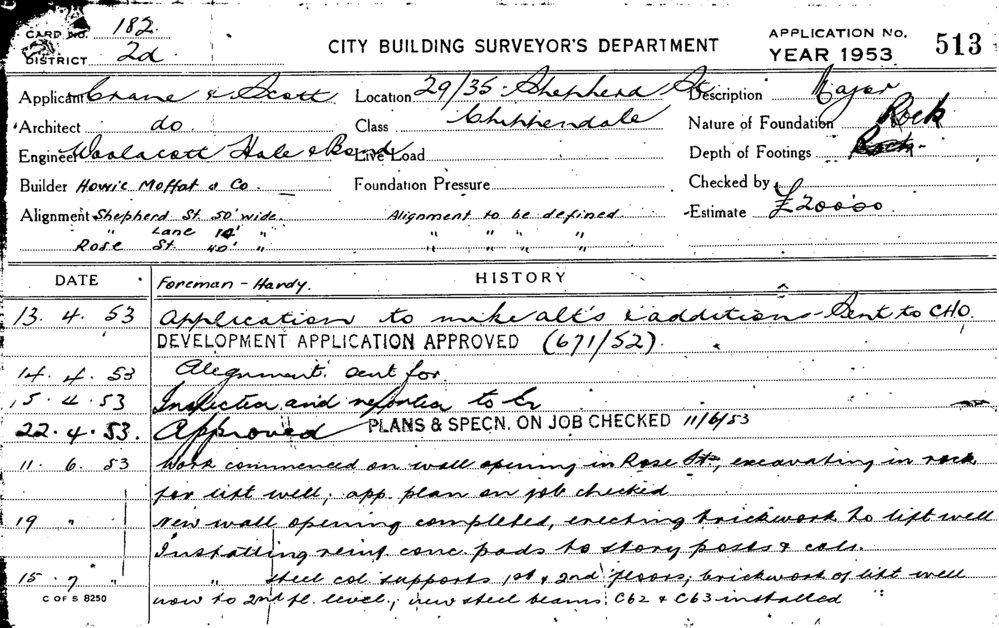 CARD NO. 182
DISTRICT 2d
CITY BUILDING SURVEYOR'S DEPARTMENT
APPLICATION NO.
YEAR 1953
513
Applicant Crane & Scott Location 29/35 Shepherd St Description Major
Architect do Class Chippendale Nature of Foundation Rock
Engineer Woolacott Hale & Bond Live Load Depth of Footings Rock
Builder Howie Moffat & Co. Foundation Pressure Checked by
Alignment Shepherd St. 50' wide. Alignment to be defined. Estimate £20000
" Lane 14' " " " " "
Rose St. 40' " " " " "
DATE Foreman - Hardy. HISTORY
13. 4. 53 Application to make alt's & additions - Sent to CHO.
DEVELOPMENT APPLICATION APPROVED (671/52).
14. 4. 53 Alignment sent for.
15. 4. 53 Inspection and to
22. 4. 53. Approved PLANS & SPECN. ON JOB CHECKED 11/6/53
11. 6. 53 Work commenced on wall opening in Rose St., excavating in rock
for lift well, app. plan on job checked
19 " " New wall opening completed, erecting brickwork to lift well
Installing reinf. conc. pads to story posts & cols.
15. 7 " " steel col supports 1st & 2nd floors, brickwork of lift well
now to 2nd fl. level, new steel beams C62 & C63 installed
C OF S 8250